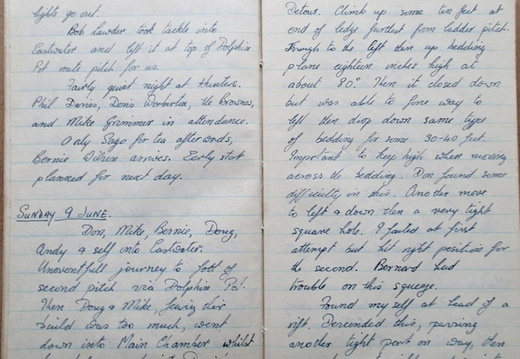 lights go out.
Bob Lawder took tackle into
Eastwater and left it at top of Dolphin
Pot route pitch for us.
Fairly quiet night at Hunters.
Phil Davies, Denis Warburton, the Browns,
and Mike Grimmer in attendance.
Only Sago for tea afterwards,
Bernie O'Brien arrives. Early start
planned for next day.
SUNDAY 9 JUNE.
Don, Mike, Bernie, Doug,
Andy & self into Eastwater.
Uneventful journey to foot of
second pitch via Dolphin Pot.
Then Doug & Mike, fearing their
build was too much, went
down into Main Chamber whilst
Detour. Climb up some ten feet at
end of ledge furthest from ladder pitch.
Through to the left then up bedding
plane eighteen inches high at
about 80°. Then it closed down
but was able to force way to
left then drop down same type
of bedding for some 30-40 feet.
Important to keep high when moving
across the bedding. Don found some
difficulty in this. Another move
to left & down then a very tight
square hole. I failed at first
attempt but hit right position for
the second. Bernard had
trouble on this squeeze.
Found myself at head of a
rift. Descended this, passing
another tight part on way, then